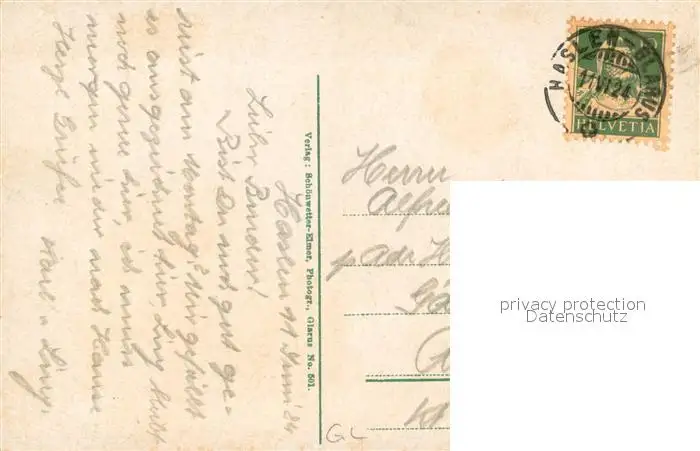 Haslen 11 Juni 24.
Lieber Bruder!
Bist Du noch gut ge-
reist am Montag? Mir gefällt
es ausgezeichnet hier, Lina bleibt
noch gerne hier, ich muss
morgen wieder nach Hause
Herzl Grüsse Karl u Lina
Verlag: Schönwetter-Elmer, Photogr., Glarus No. 501.
Herrn
Alfre
p adr H
GL
HASLEN (GLARUS)
11.VI.24
HELVETIA
privacy protection
Datenschutz